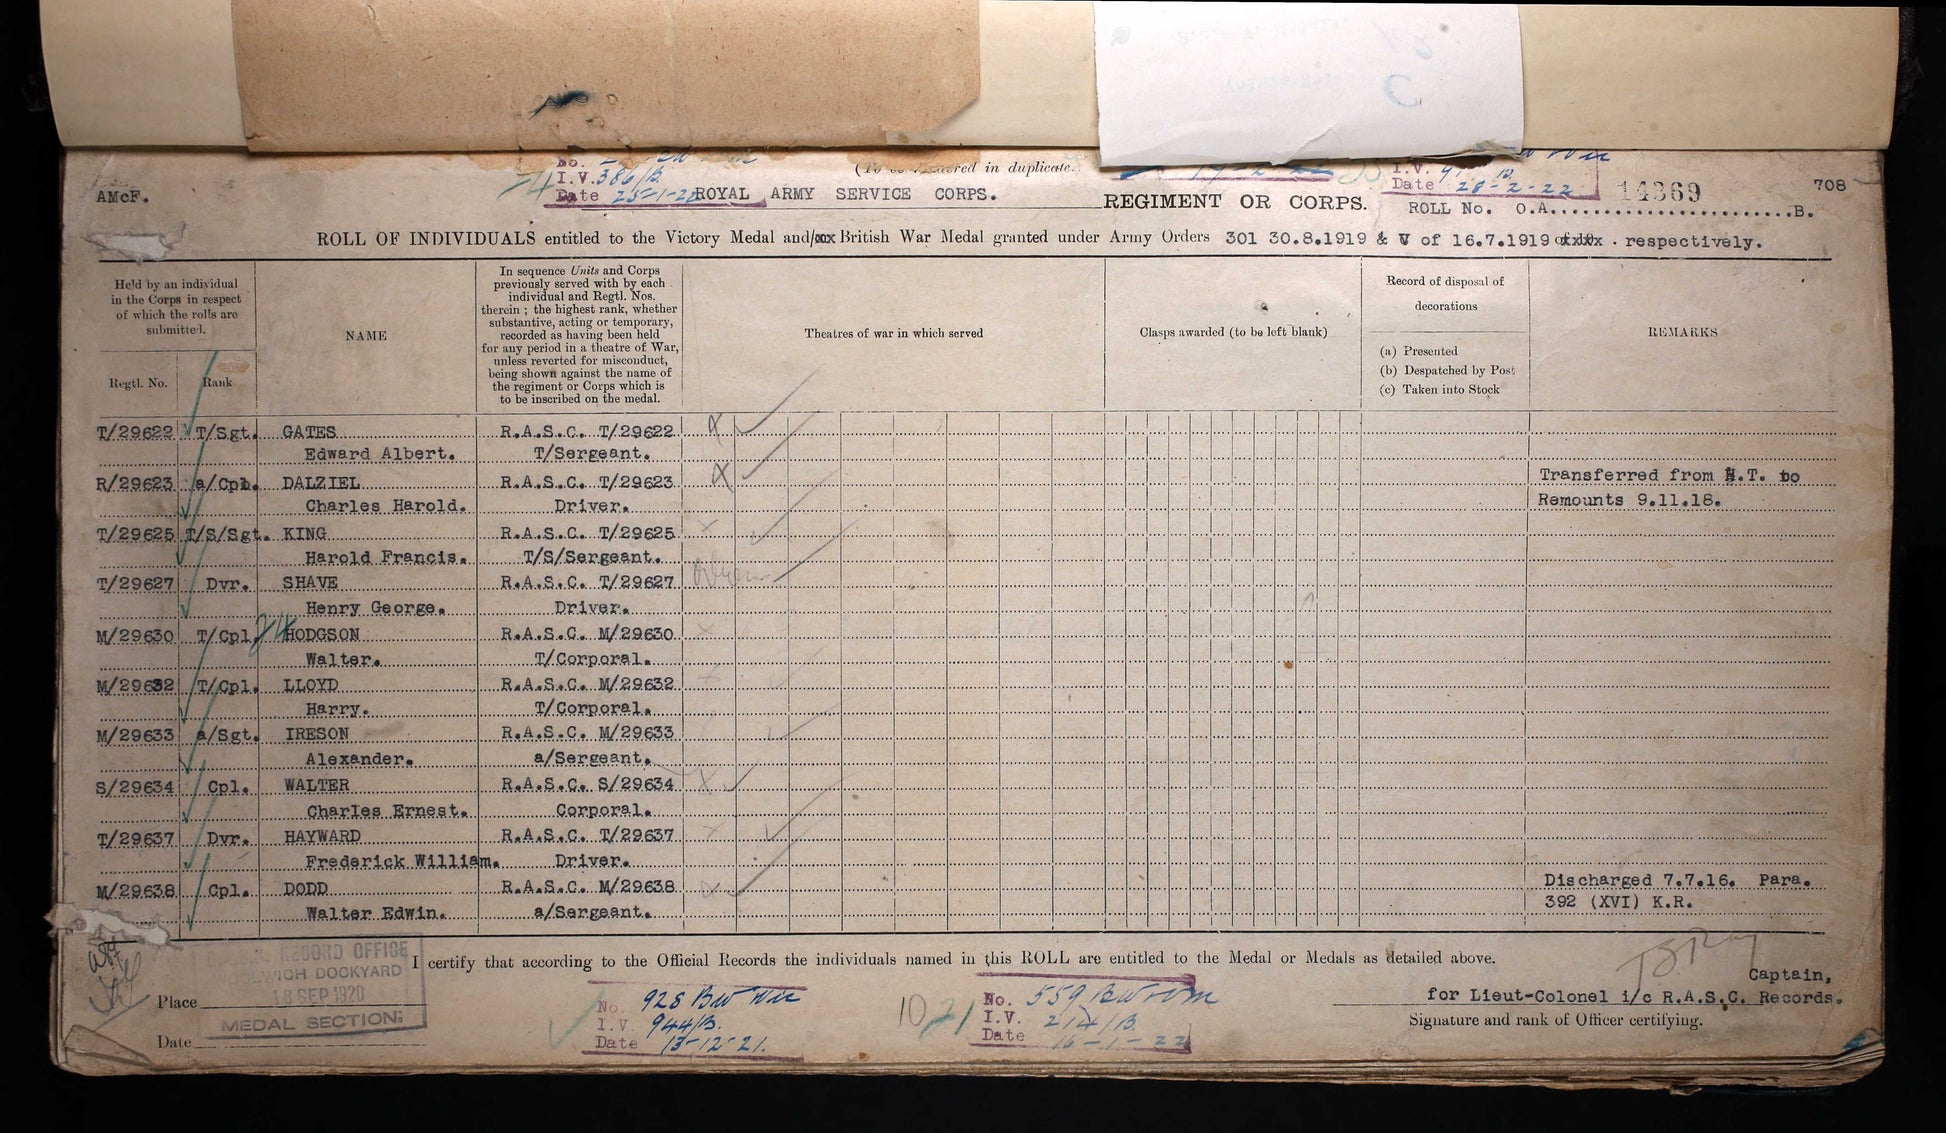 (To be rendered in duplicate.
I.V. 386/B.
Date 25-1-22
28-2-22
I.V.
Date
AMcF.
ROYAL ARMY SERVICE CORPS.
REGIMENT OR CORPS.
ROLL No. O.A. 14369 B.
708
ROLL OF INDIVIDUALS entitled to the Victory Medal and/xxx British War Medal granted under Army Orders 301 30.8.1919 & V of 16.7.1919 respectively.
Held by an individual
in the Corps in respect
of which the rolls are
submitted.
Regtl. No.
Rank
NAME
In sequence Units and Corps
previously served with by each
individual and Regtl. Nos.
therein ; the highest rank, whether
substantive, acting or temporary,
recorded as having been held
for any period in a theatre of War,
unless reverted for misconduct,
being shown against the name of
the regiment or Corps which is
to be inscribed on the medal.
Theatres of war in which served
Clasps awarded (to be left blank)
Record of disposal of
decorations
(a) Presented
(b) Despatched by Post
(c) Taken into Stock
REMARKS
T/29622 T/Sgt. GATES R.A.S.C. T/29622
Edward Albert. T/Sergeant.
R/29623 a/Cpl. DALZIEL R.A.S.C. T/29623 Transferred from H.T. to
Charles Harold. Driver. Remounts 9.11.18.
T/29625 T/S/Sgt. KING R.A.S.C. T/29625
Harold Francis. T/S/Sergeant.
T/29627 Dvr. SHAVE R.A.S.C. T/29627
Henry George. Driver.
M/29630 T/Cpl. HODGSON R.A.S.C. M/29630
Walter. T/Corporal.
M/29632 T/Cpl. LLOYD R.A.S.C. M/29632
Harry. T/Corporal.
M/29633 a/Sgt. IRESON R.A.S.C. M/29633
Alexander. a/Sergeant.
S/29634 Cpl. WALTER R.A.S.C. S/29634
Charles Ernest. Corporal.
T/29637 Dvr. HAYWARD R.A.S.C. T/29637
Frederick William. Driver.
M/29638 Cpl. DODD R.A.S.C. M/29638 Discharged 7.7.16. Para.
Walter Edwin. a/Sergeant. 392 (XVI) K.R.
I certify that according to the Official Records the individuals named in this ROLL are entitled to the Medal or Medals as detailed above.
RECORD OFFICE
WOOLWICH DOCKYARD
18 SEP 1920
MEDAL SECTION
Place
Date
No. 928 BW
I.V. 944/B.
Date 13-12-21.
10
21
No. 559 BW
I.V. 214/B.
Date 16-1-22
Captain,
for Lieut-Colonel i/c R.A.S.C. Records.
Signature and rank of Officer certifying.